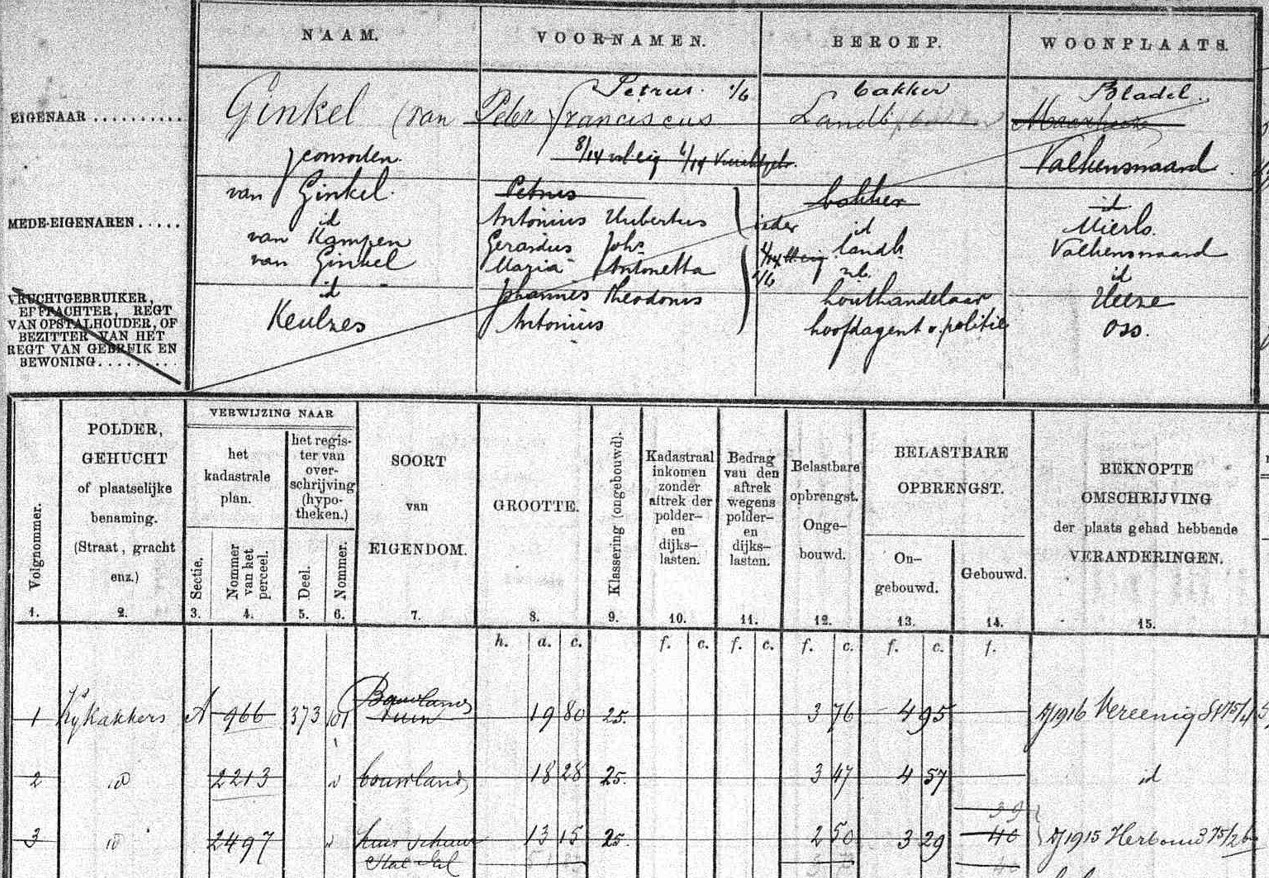 NAAM. VOORNAMEN. BEROEP. WOONPLAATS.
Petrus. 1/6 bakker Bladel.
EIGENAAR .......... Ginkel (van Peter franciscus Landb
consorten.
8/14 vol. eig. 6/14 Valkenswaard
van Ginkel. Petrus bakker id
MEDE-EIGENAREN ..... id Antonius Hubertus ieder id Mierlo.
van Kampen Gerardus Johs landb. Valkenswaard
van Ginkel Maria Antonetta 1/6 z.b. id
id Johannes Theodorus houthandelaar Heeze
Keulzes Antonius hoofdagent v. politie Oss.
VRUCHTGEBRUIKER,
ERFPACHTER, REGT
VAN OPSTALHOUDER, OF
BEZITTER VAN HET
REGT VAN GEBRUIK EN
BEWONING.........
Volgnommer.
1.
POLDER,
GEHUCHT
of plaatselijke
benaming.
(Straat, gracht
enz.)
2.
VERWIJZING NAAR
het
kadastrale
plan.
Sectie.
3.
Nommer
van het
perceel.
4.
het regis-
ter van
over-
schrijving
(hypo-
theken.)
Deel.
5.
Nommer.
6.
SOORT
van
EIGENDOM.
7.
GROOTTE.
8.
Klassering (ongebouwd).
9.
Kadastraal
inkomen
zonder
aftrek der
polder-
en
dijks-
lasten.
10.
Bedrag
van den
aftrek
wegens
polder-
en
dijks-
lasten.
11.
Belastbare
opbrengst.
Onge-
bouwd.
12.
BELASTBARE
OPBRENGST.
On-
gebouwd.
13.
Gebouwd.
14.
BEKNOPTE
OMSCHRIJVING
der plaats gehad hebbende
VERANDERINGEN.
15.
h. a. c. f. c. f. c. f. c. f. c. f.
Bouwland
1 A 966 373 101 tuin 19 80 25. 3 76 4 95 Dj 1916 Vereenig
2 id 2213 id bouwland 18 28 25. 3 47 4 57 id
39
3 id 2497 id huis schuur 13 15 25 2 50 3 29 40 Dj 1915 Herbouw